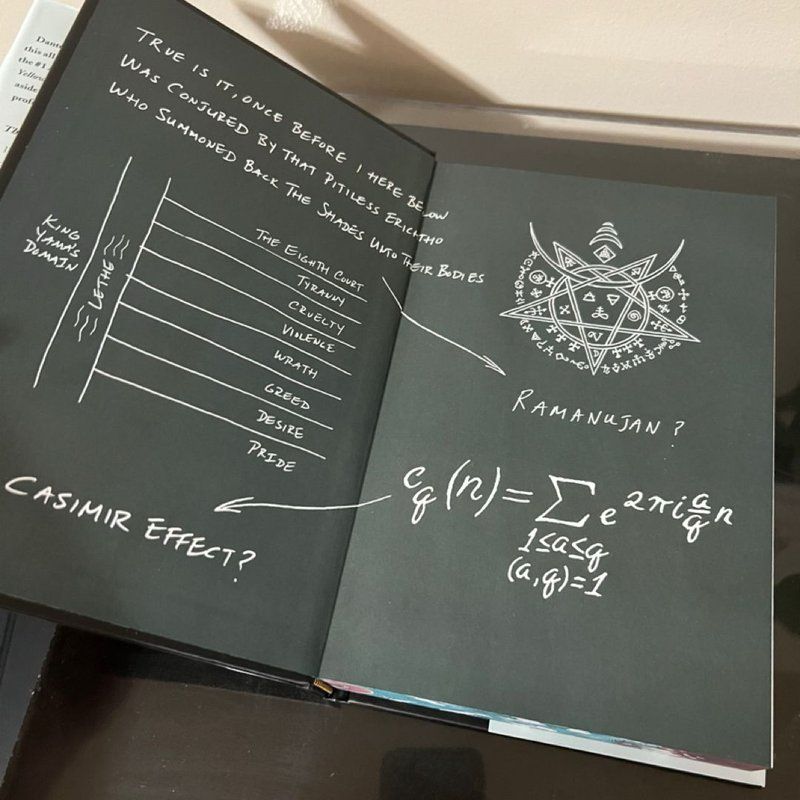 Dante
this all
the #1
Yellow
aside
prof
TRUE IS IT, ONCE BEFORE I HERE BELOW
WAS CONJURED BY THAT PITILESS ERICHTHO
WHO SUMMONED BACK THE SHADES UNTO THEIR BODIES
KING
YAMA'S
DOMAIN
LETHE
THE EIGHTH COURT
TYRANNY
CRUELTY
VIOLENCE
WRATH
GREED
DESIRE
PRIDE
CASIMIR EFFECT?
RAMANUJAN?
c_q(n) = ∑ e^{2πi\frac{a}{q}n}
1≤a≤q
(a,q)=1